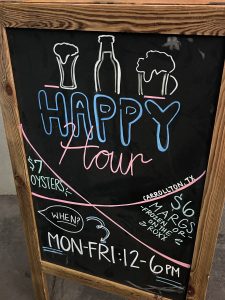 HAPPY
Hour
$7
OYSTERS
CARROLLTON, TX
$6
MARGS
FROZEN OR
ON THE
ROXX
WHEN?
MON-FRI: 12-6PM